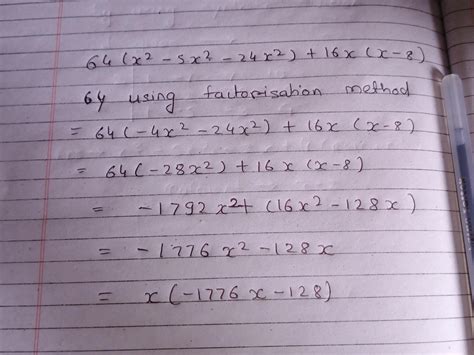 64 (x² - 5x² - 24x²) + 16x (x-8)
64 using factorisation method
= 64 (-4x² - 24x²) + 16x (x-8)
= 64 (-28x²) + 16x (x-8)
= -1792x² + (16x² - 128x)
= -1776x² - 128x
= x(-1776x - 128)